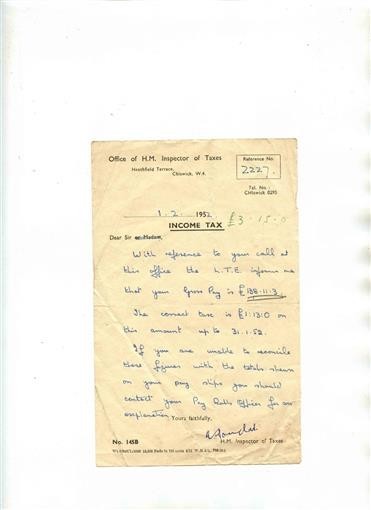 Office of H.M. Inspector of Taxes
Heathfield Terrace,
Chiswick, W.4.
Reference No.
2227.
Tel. No:
CHIswick 0295
1. 2. 1952
£3-15-0
INCOME TAX
Dear Sir or Madam,
With reference to your call at
this office the L.T.E. informs me
that your Gross Pay is £138-11-3.
The correct tax is £1:13:0 on
this amount up to 31.1.52.
If you are unable to reconcile
these figures with the totals shewn
on your pay slips you should
contact your Pay Rolls Officer for an
explanation. Yours faithfully,
No. 145B
H.M. Inspector of Taxes